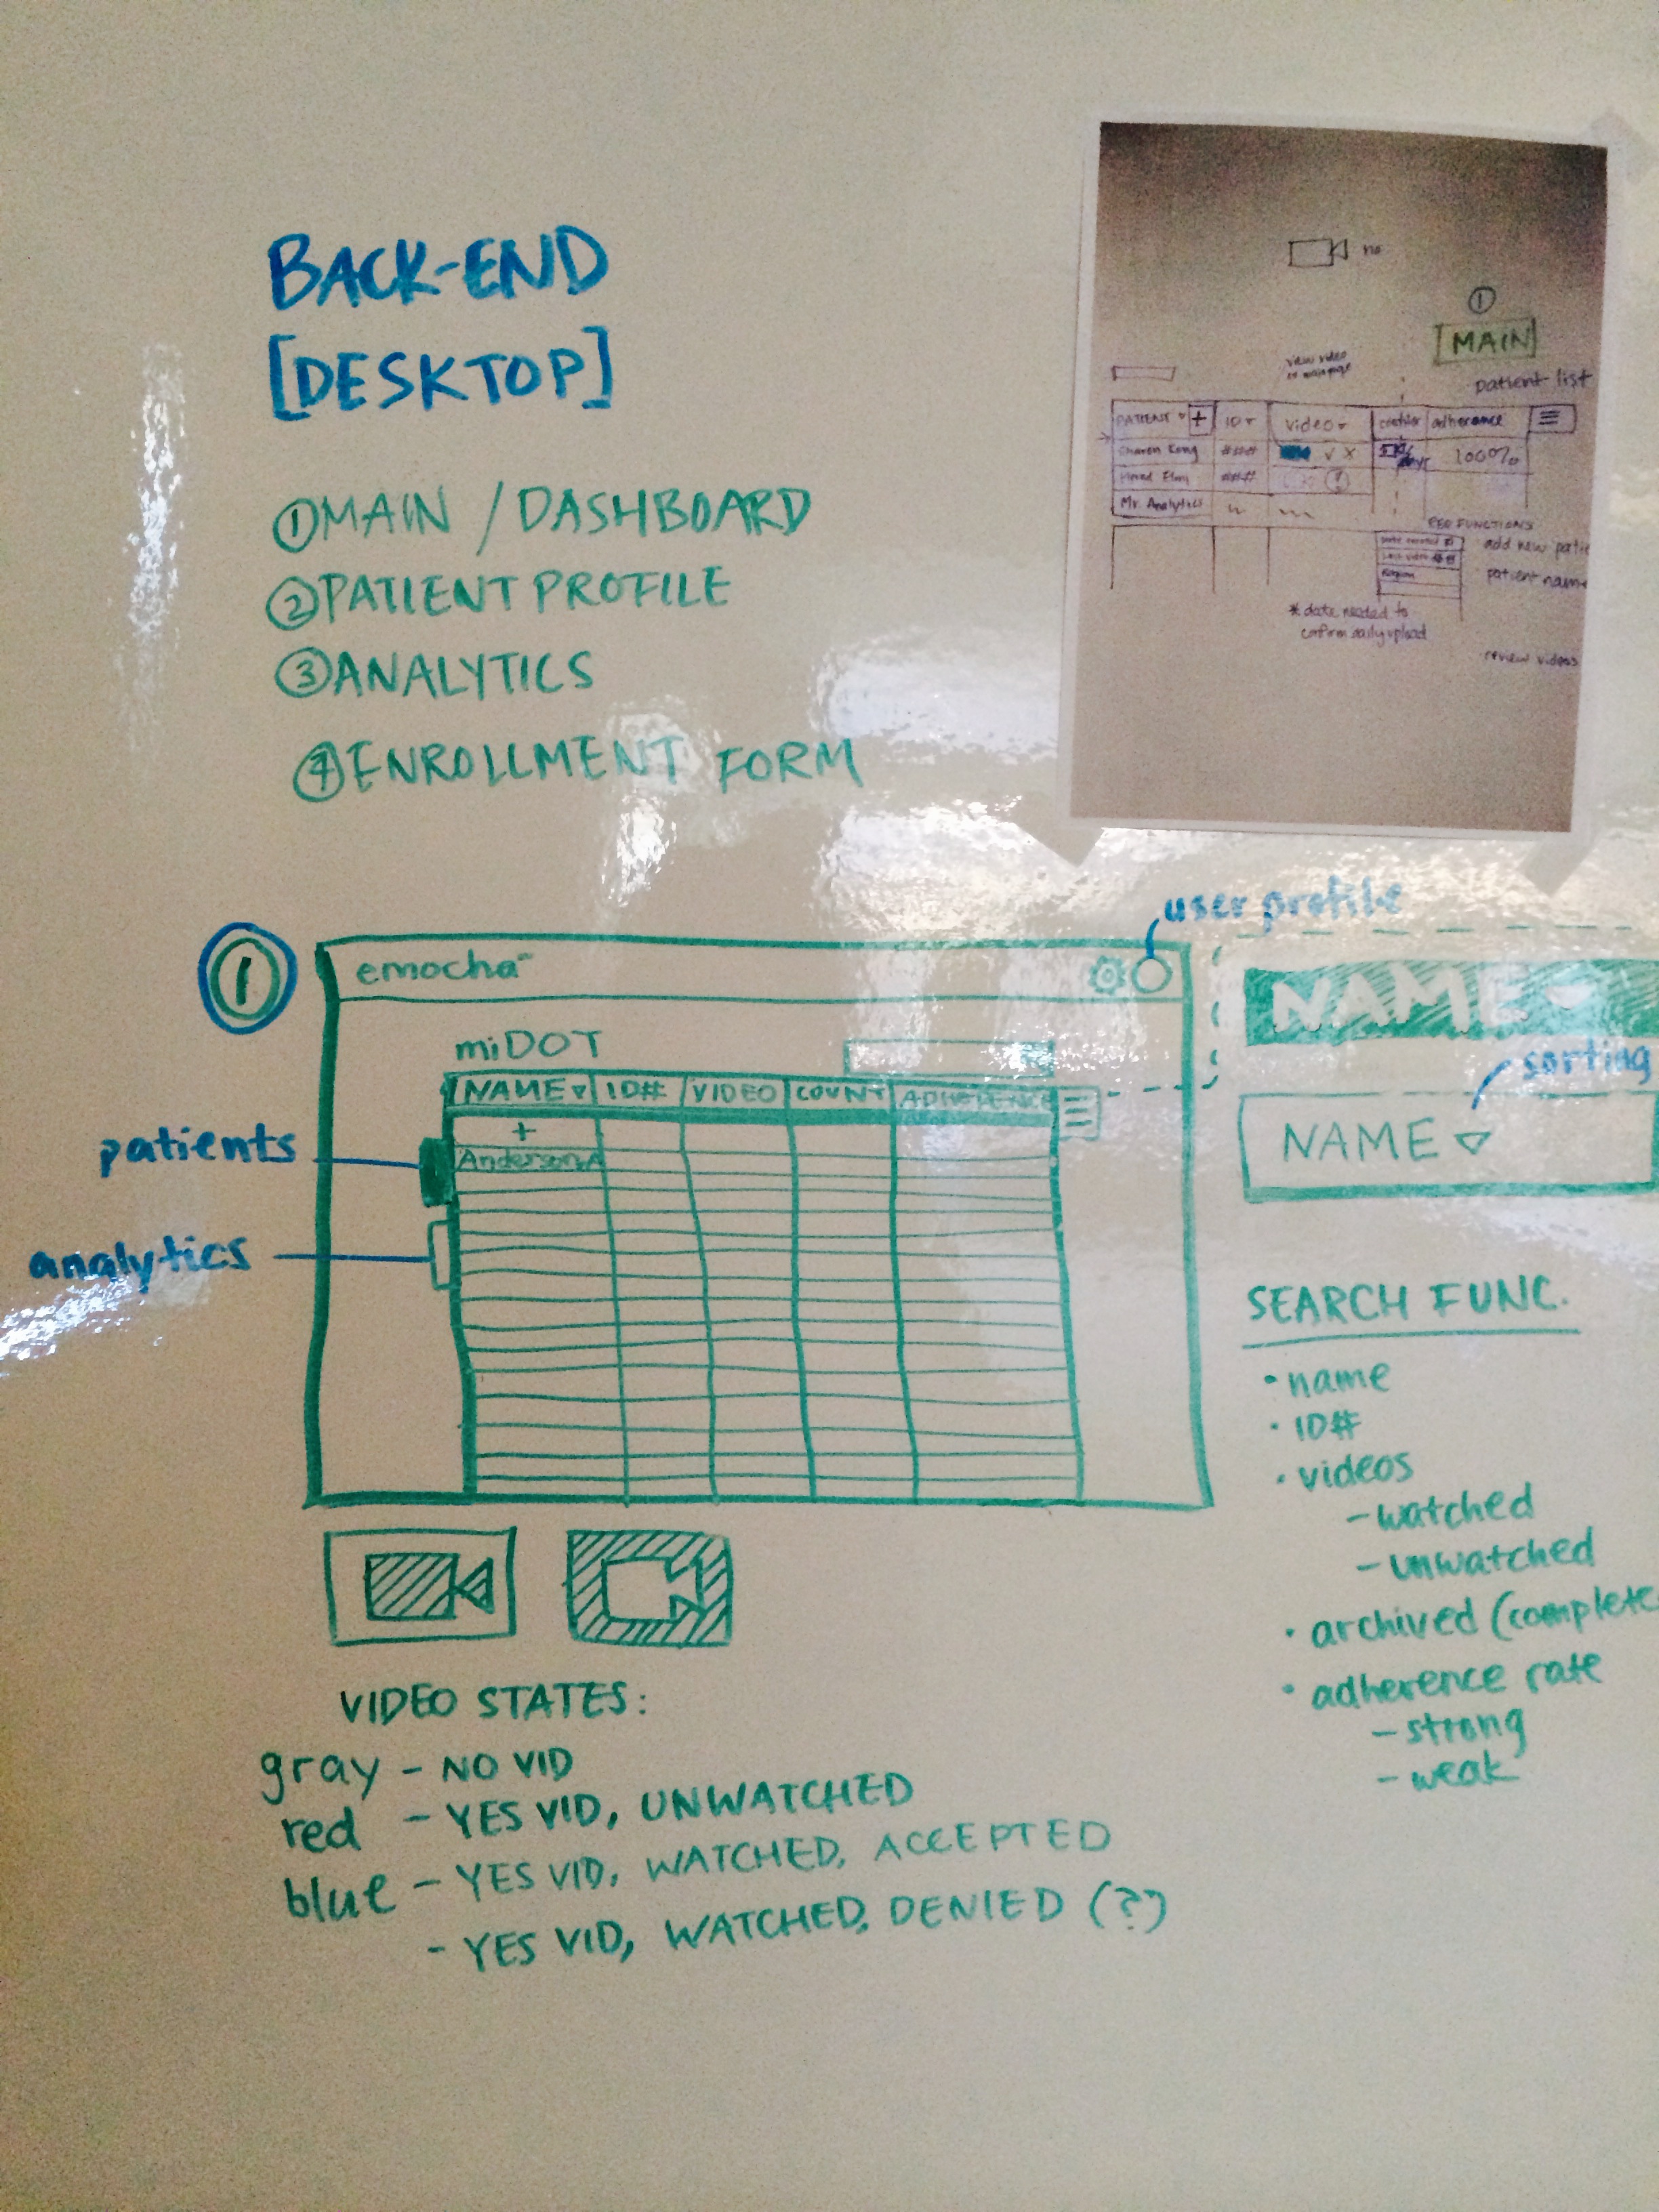 BACK-END
[DESKTOP]
① MAIN / DASHBOARD
② PATIENT PROFILE
③ ANALYTICS
④ ENROLLMENT FORM
no
①
[MAIN]
view video
on main page
patient list
PATIENT ▿ + ID▿ video▿ adherence
#### ✓ X 100%
####
Mr. Analytics
FUNCTIONS
add new patie
patient name
Region
* date needed to
confirm daily upload
review videos
user profile
1
emocha
miDOT
NAME ▿ ID# VIDEO COUNT ADHERENCE
+
Anderson, A
patients
analytics
NAME
sorting
NAME ▿
SEARCH FUNC.
• name
• ID#
• videos
– watched
– unwatched
• archived (complete
• adherence rate
– strong
– weak
VIDEO STATES:
gray – NO VID
red – YES VID, UNWATCHED
blue – YES VID, WATCHED, ACCEPTED
- YES VID, WATCHED, DENIED (?)